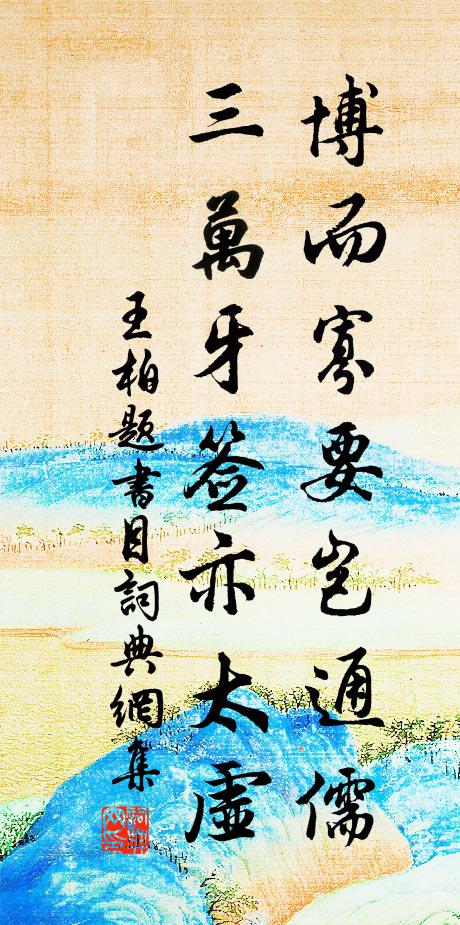 博而寡要岂通儒
三萬牙签亦太虛
王柏题書目詞典網集